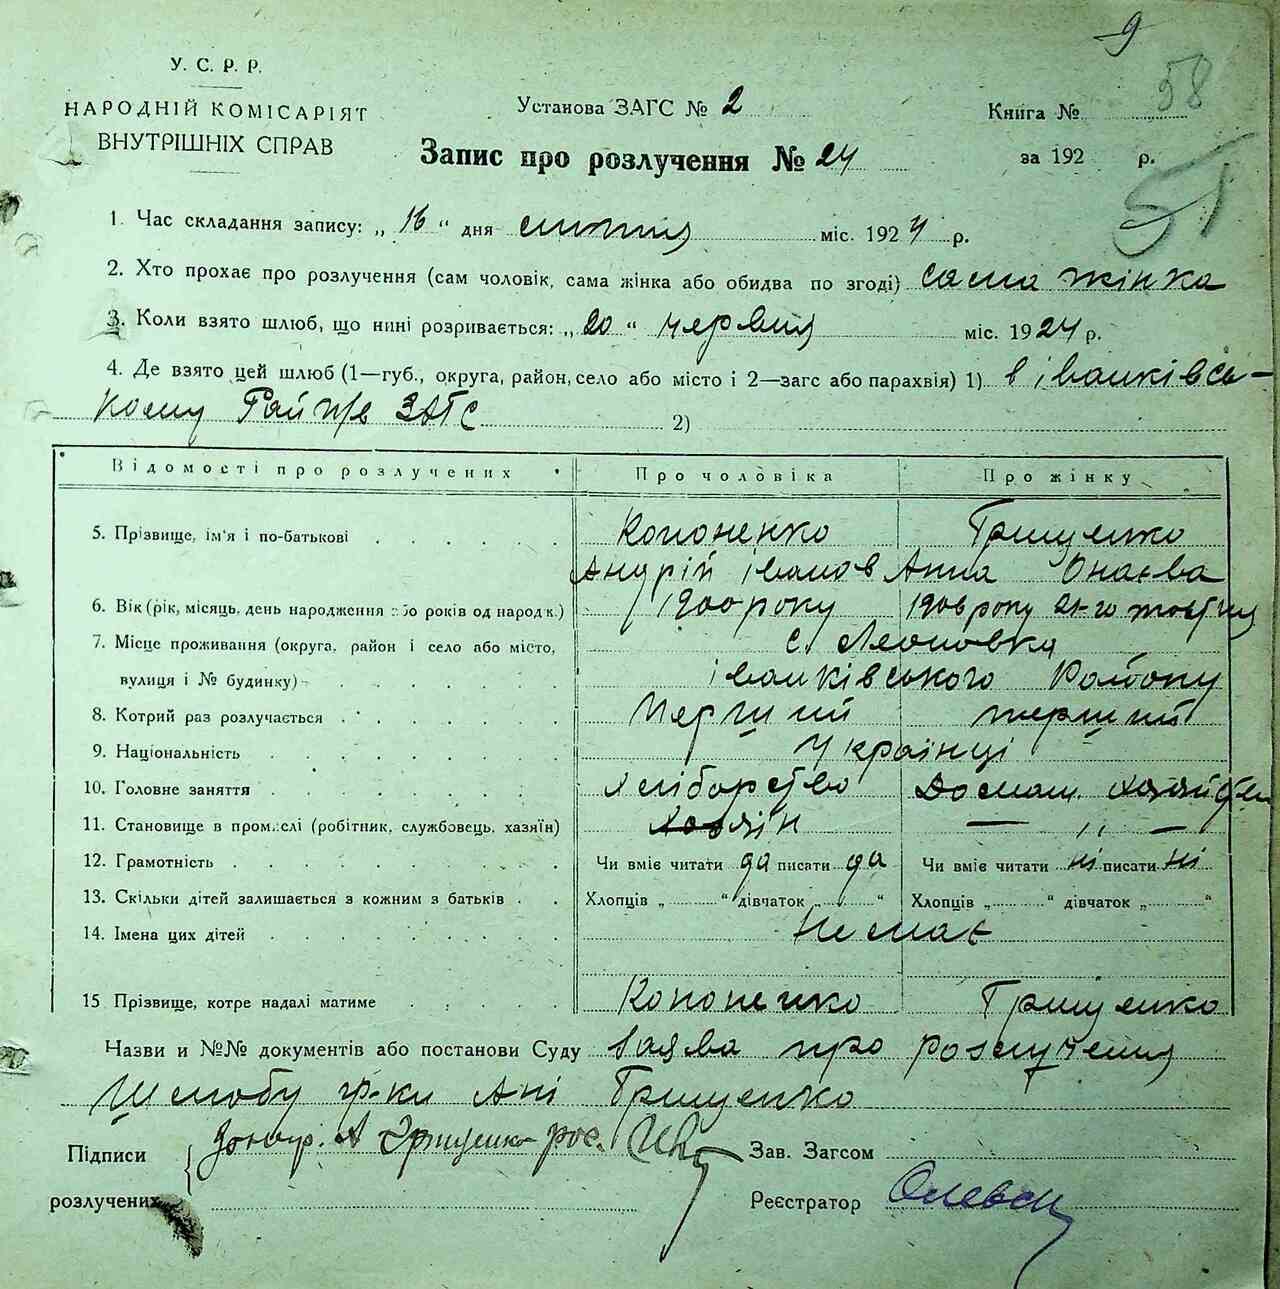 9
58
51
У. С. Р. Р.
НАРОДНІЙ КОМІСАРІЯТ
ВНУТРІШНІХ СПРАВ
Установа ЗАГС № 2
Книга №
Запис про розлучення № 24
за 192 р.
1. Час складання запису: „ 16 “ дня липня міс. 1924 р.
2. Хто прохає про розлучення (сам чоловік, сама жінка або обидва по згоді) сама жінка
3. Коли взято шлюб, що нині розривається: „ 20 “ червня міс. 1924 р.
4. Де взято цей шлюб (1—губ., округа, район, село або місто і 2—загс або парахвія) 1) в іванківсь-
кому ЗАГС 2)
Відомості про розлучених Про чоловіка Про жінку
5. Прізвище, ім'я і по-батькові Кононенко Грищенко
Андрій іванов Анна
6. Вік (рік, місяць, день народження або років од народж.) 1900 року 1906 року 21-го жовтня
7. Місце проживання (округа, район і село або місто, с.
вулиця і № будинку) іванківського Району
8. Котрий раз розлучається Перший перший
9. Національність Українці
10. Головне заняття Хліборобство Домаш.
11. Становище в промислі (робітник, службовець, хазяїн) Хозяїн — „ —
12. Грамотність Чи вміє читати да писати да Чи вміє читати ні писати ні
13. Скільки дітей залишається з кожним з батьків Хлопців „ “ дівчаток „ “ Хлопців „ “ дівчаток „ “
14. Імена цих дітей Немає
15 Прізвище, котре надалі матиме Кононенко Грищенко
Назви и №№ документів або постанови Суду Заява про розлучення
Шлюбу гр-ки Ані Грищенко
Підписи А Грищенко Зав. Загсом
розлучених Реєстратор